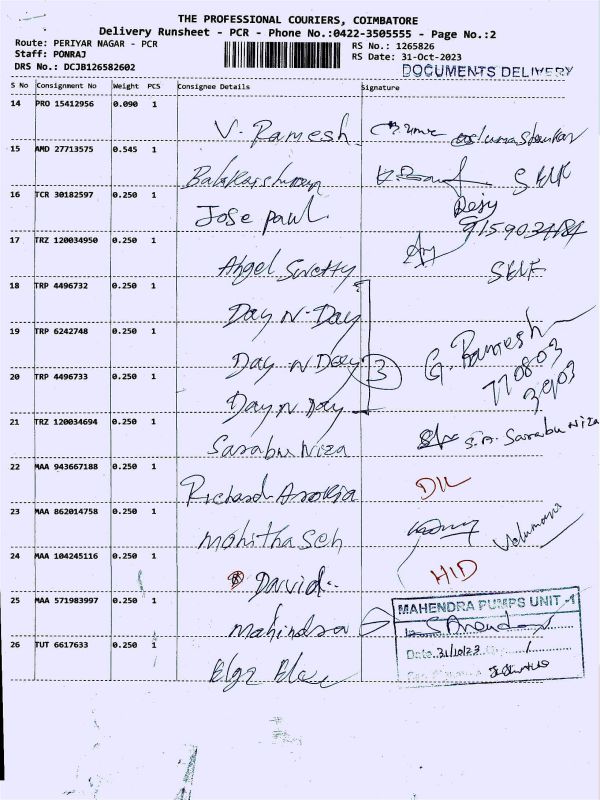 THE PROFESSIONAL COURIERS, COIMBATORE
Delivery Runsheet - PCR - Phone No.:0422-3505555 - Page No.:2
Route: PERIYAR NAGAR - PCR RS No.: 1265826
Staff: PONRAJ RS Date: 31-Oct-2023
DRS No.: DCJB126582602 DOCUMENTS DELIVERY
S No Consignment No Weight PCS Consignee Details Signature
14 PRO 15412956 0.090 1
V. Ramesh
15 AMD 27713575 0.545 1
SELF
16 TCR 30182597 0.250 1
Jose paul
17 TRZ 120034950 0.250 1
Angel SELF
18 TRP 4496732 0.250 1
Day N-Day
19 TRP 6242748 0.250 1
Day N Day 3 G. Ramesh
20 TRP 4496733 0.250 1 770803
Day N Day 3903
21 TRZ 120034694 0.250 1
Sarabu Niza S.A. Sarabu Niza
22 MAA 943667188 0.250 1
Richard D/L
23 MAA 862014758 0.250 1
Velumani
24 MAA 104245116 0.250 1
David H/D
25 MAA 571983997 0.250 1 MAHENDRA PUMPS UNIT -1
Mahindra
26 TUT 6617633 0.250 1 Date 31/10/23
Elgi